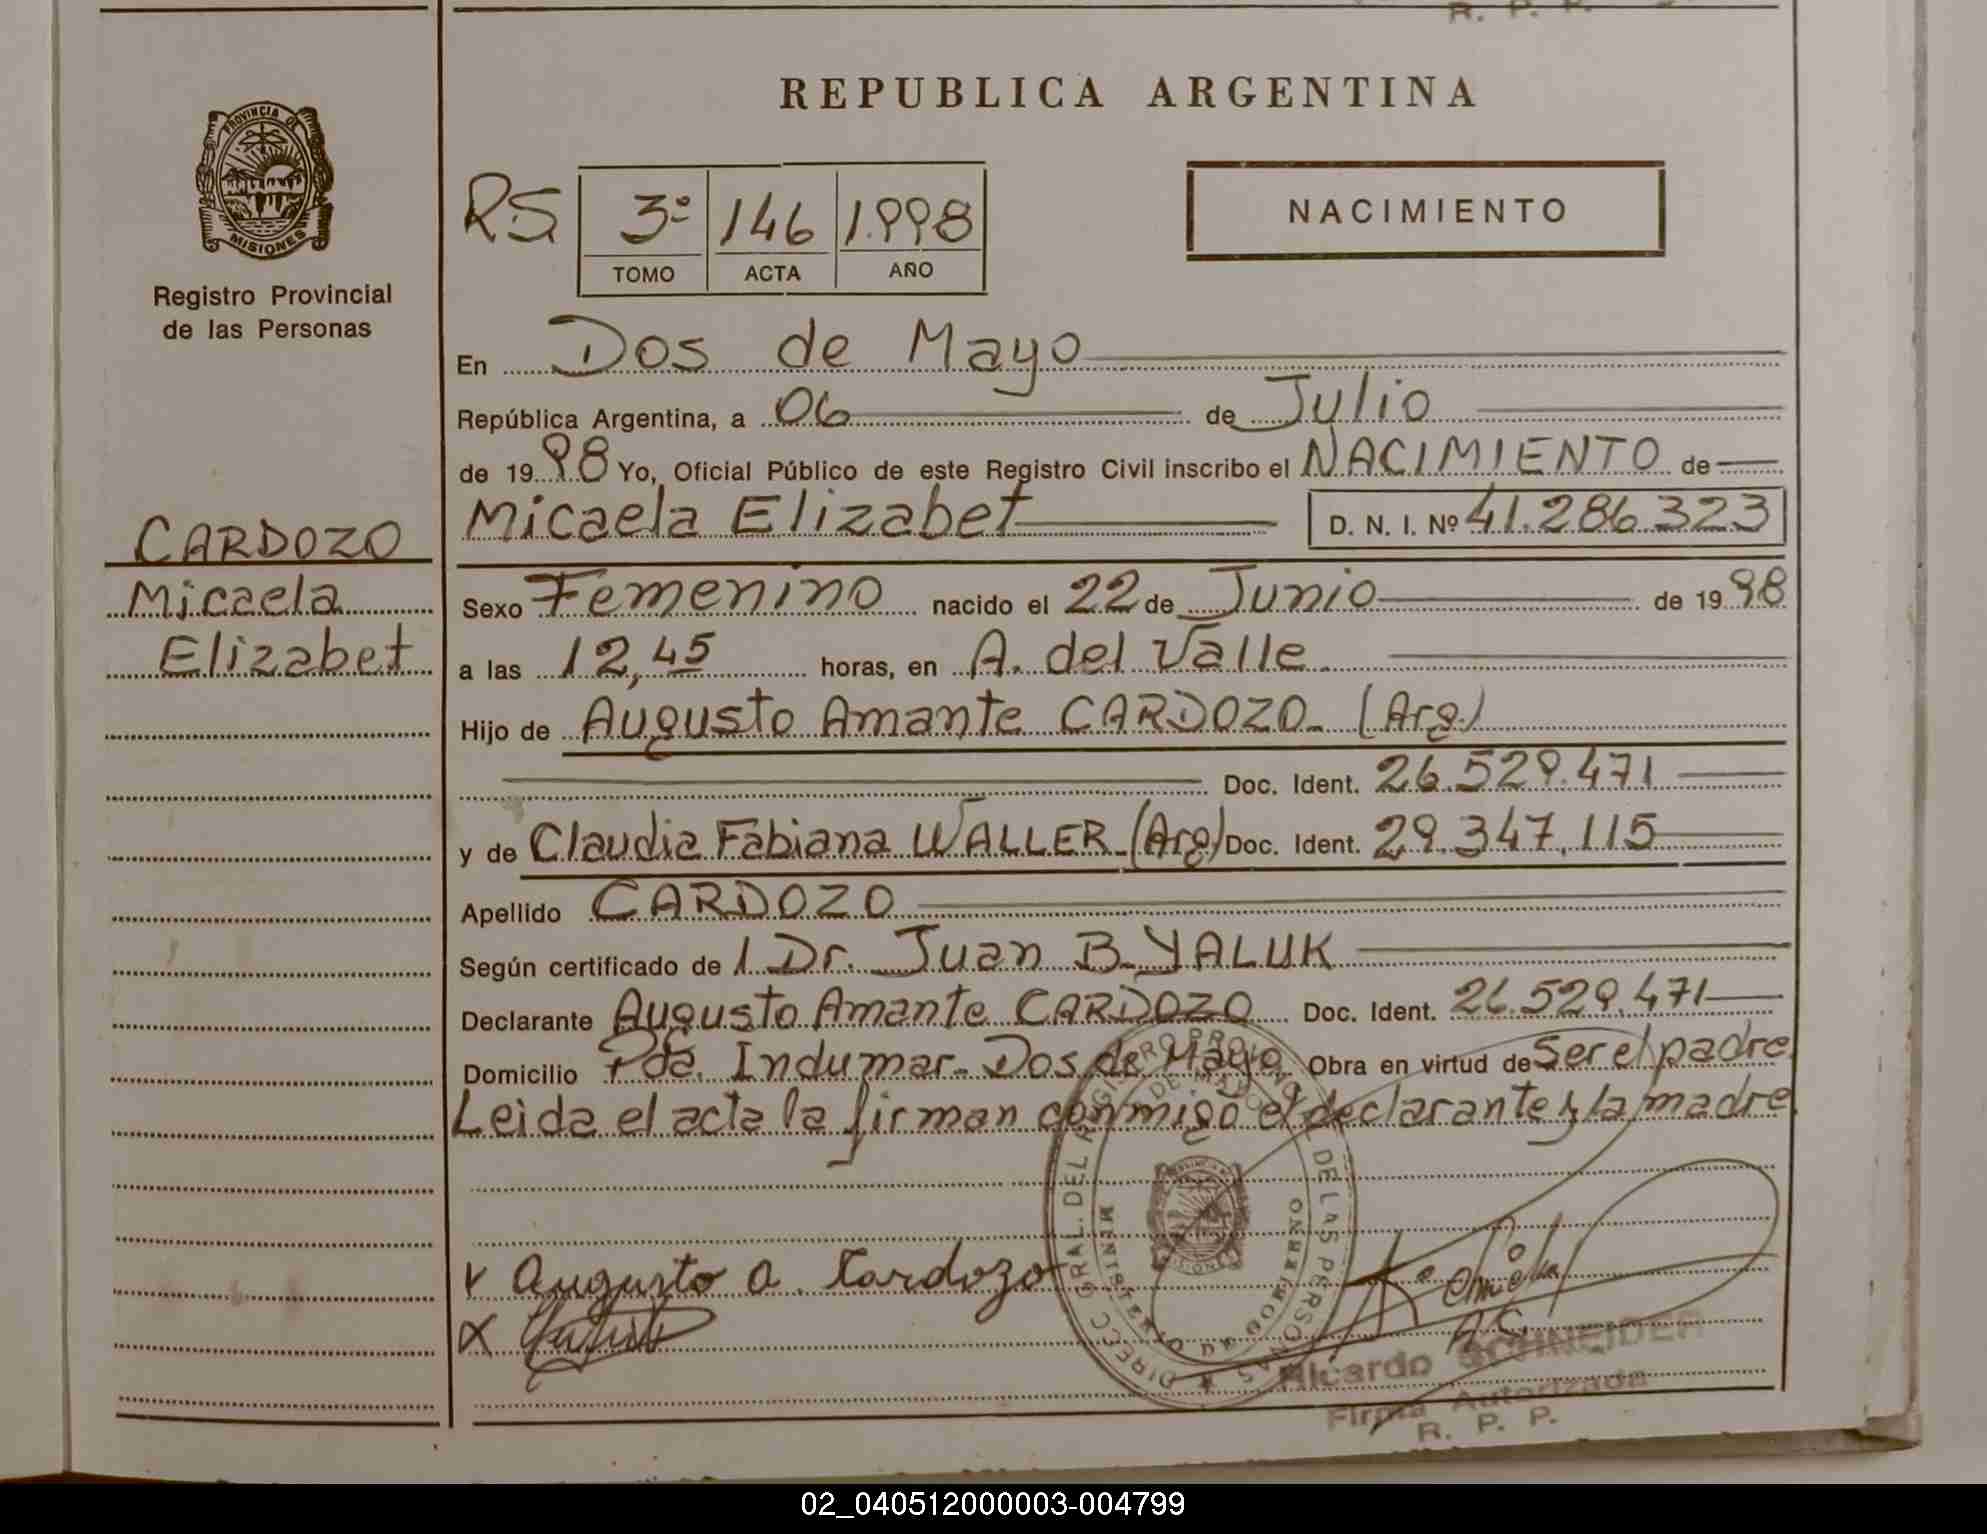 R. P. P.
REPUBLICA ARGENTINA
PROVINCIA DE
MISIONES
Registro Provincial
de las Personas
RS 3º 146 1.998
TOMO ACTA AÑO
NACIMIENTO
En Dos de Mayo
República Argentina, a 06 de Julio
de 1998 Yo, Oficial Público de este Registro Civil inscribo el NACIMIENTO de
Micaela Elizabet D. N. I. Nº 41.286.323
CARDOZO
Micaela
Elizabet
Sexo Femenino nacido el 22 de Junio de 1998
a las 12,45 horas, en A. del Valle
Hijo de Augusto Amante CARDOZO_ (Arg.)
Doc. Ident. 26.529.471
y de Claudia Fabiana WALLER_(Arg) Doc. Ident. 29.347.115
Apellido CARDOZO
Según certificado de 1 Dr. Juan B. YALUK
Declarante Augusto Amante CARDOZO Doc. Ident. 26.529.471
Domicilio Pda. Indumar_ Dos de Mayo. Obra en virtud de ser el padre.
Leida el acta la firman conmigo el declarante y la madre.
DIRECC GRAL. DEL REGISTRO PROVINCIAL DE LAS PERSONAS
DE MAYO
MISIONES
Augusto A. Cardozo
Ricardo SCHNEIDER
Firma Autorizada
R. P. P.
02_040512000003-004799